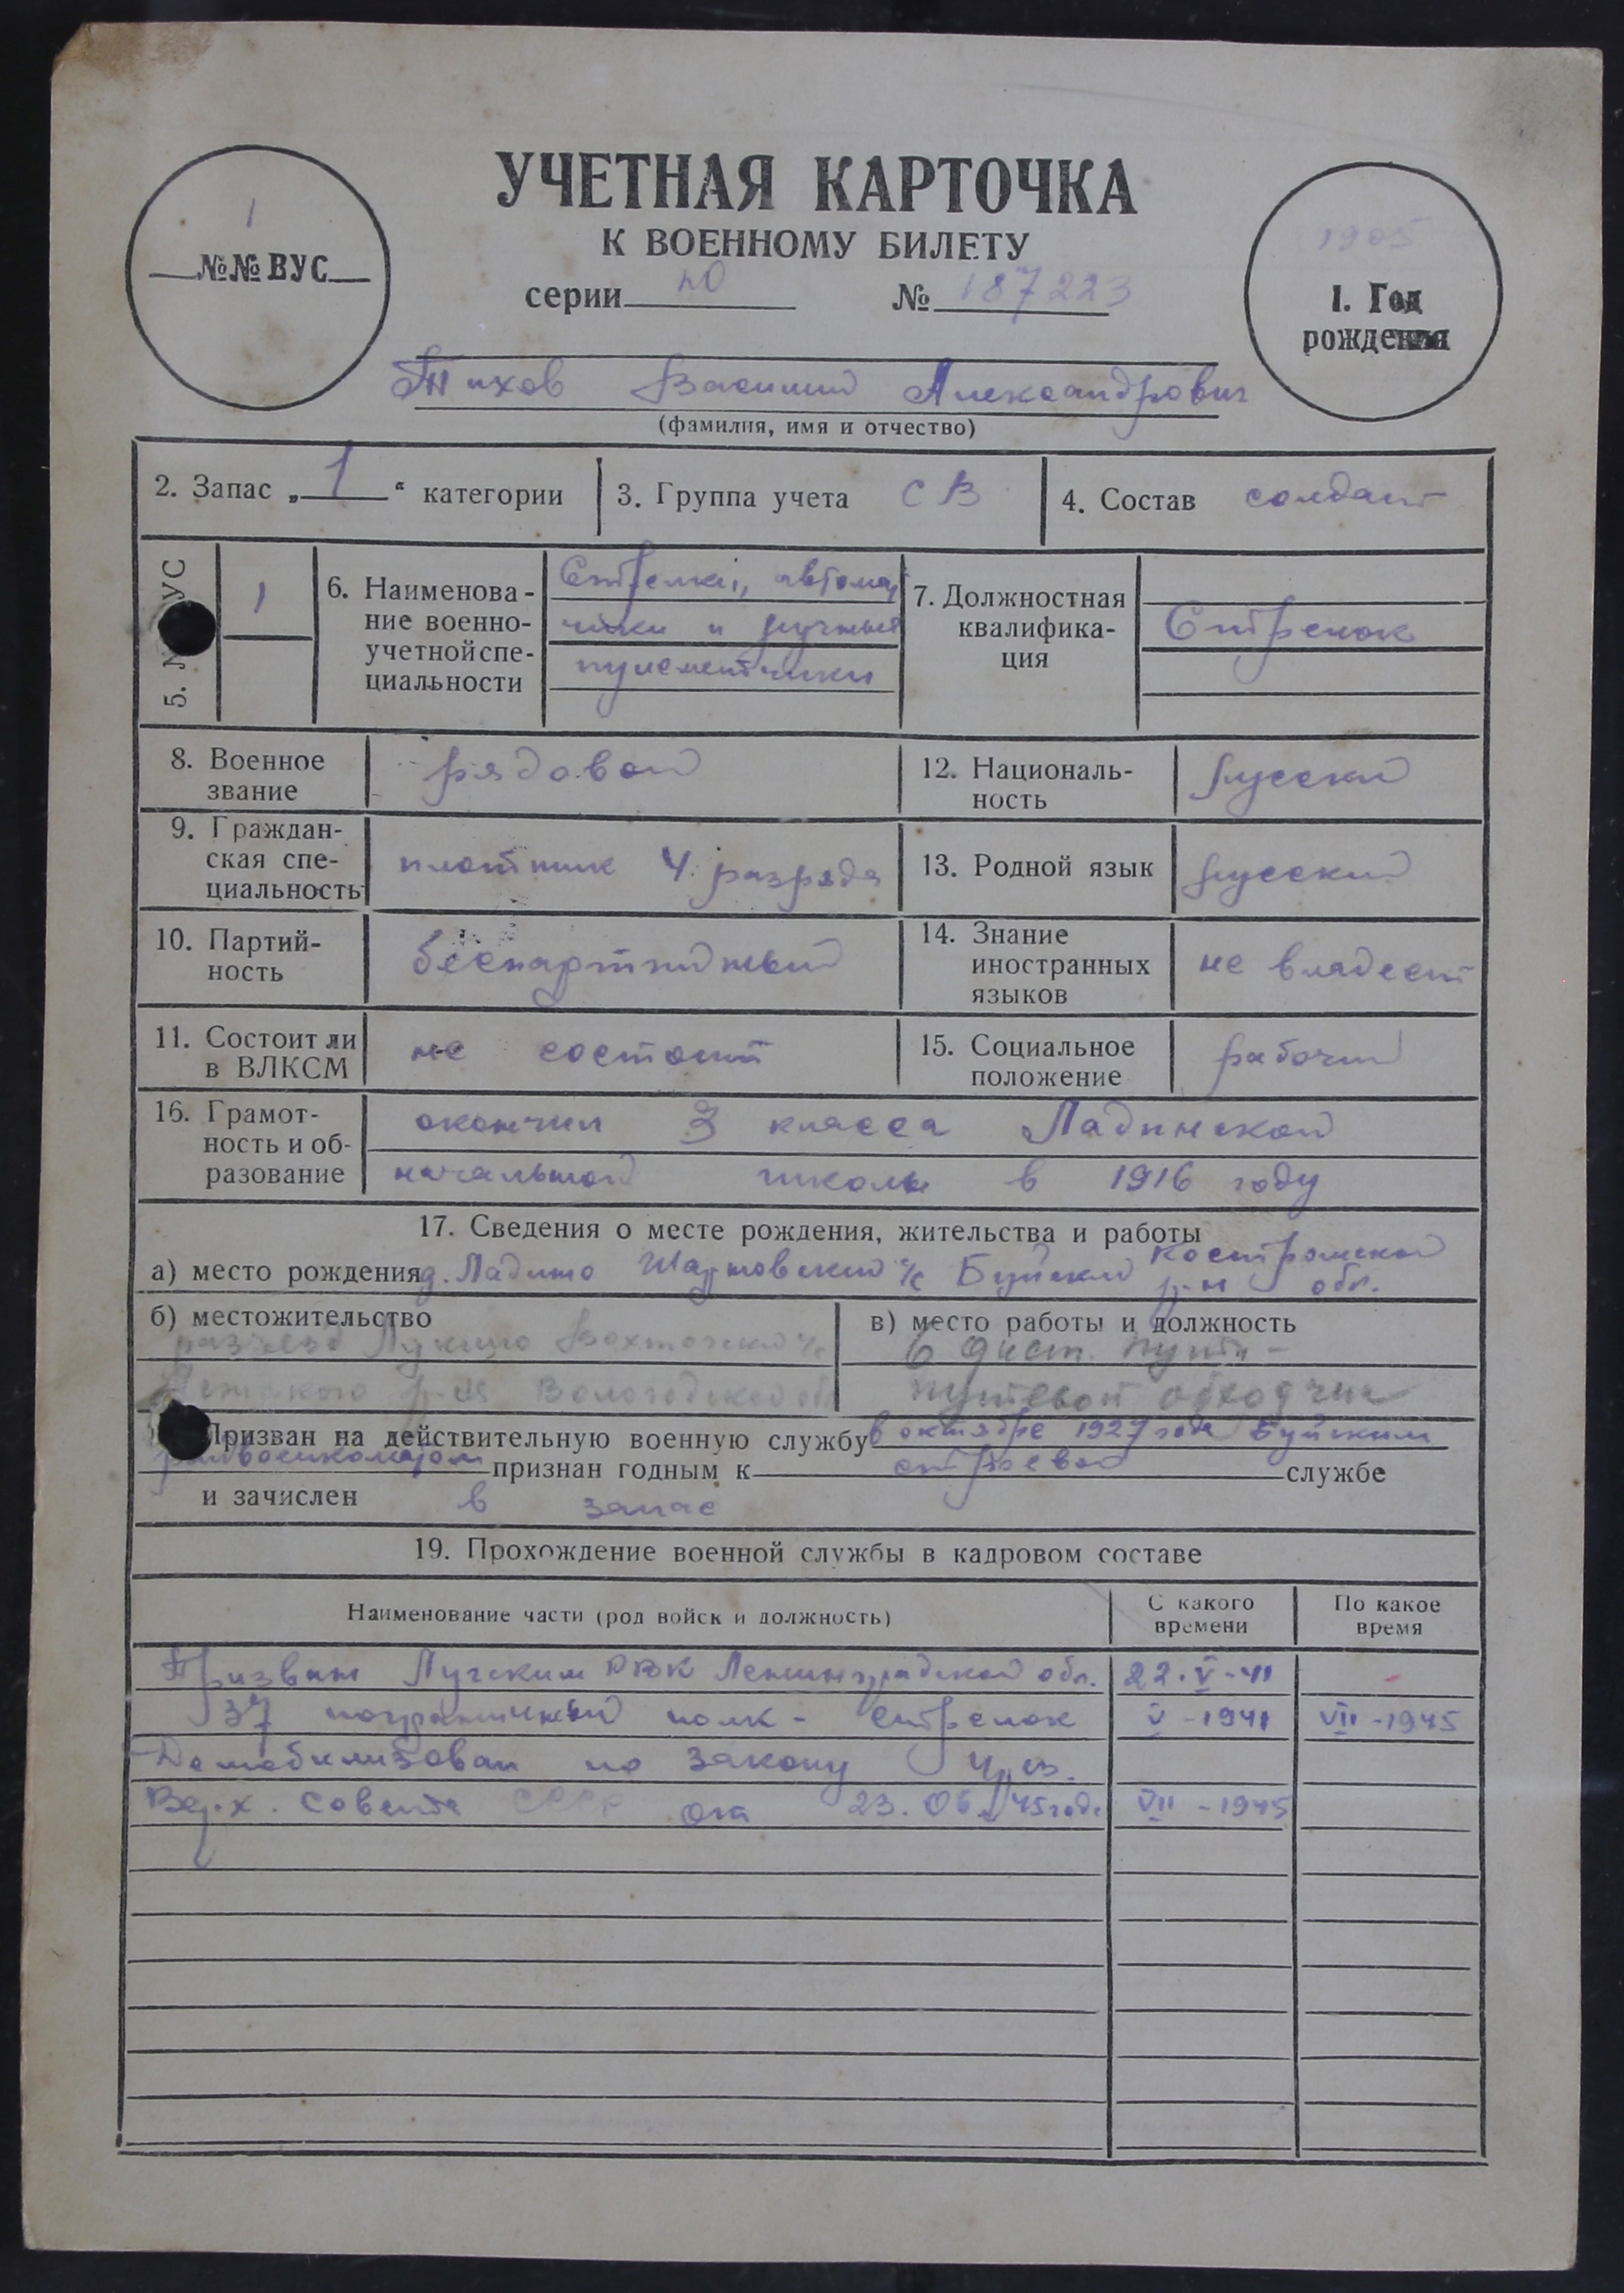 УЧЕТНАЯ КАРТОЧКА
К ВОЕННОМУ БИЛЕТУ
1
№№ ВУС
1905
1. Год
рождения
серии № 187223
Тихов Василий Александрович
(фамилия, имя и отчество)
2. Запас „1“ категории
3. Группа учета СВ
4. Состав солдат
5. УС
1
6. Наименова-
ние военно-
учетной спе-
циальности
Стрелки, автомат
чики и ручные
пулеметчики
7. Должностная
квалифика-
ция
Стрелок
8. Военное
звание
рядовой
12. Националь-
ность
русский
9. Граждан-
ская спе-
циальность
плотник 4 разряда
13. Родной язык
русский
10. Партий-
ность
беспартийный
14. Знание
иностранных
языков
не владеет
11. Состоит ли
в ВЛКСМ
не состоит
15. Социальное
положение
рабочий
16. Грамот-
ность и об-
разование
окончил 3 класса Ладинской
начальной школы в 1916 году
17. Сведения о месте рождения, жительства и работы
а) место рождения д. Ладино с/с Буйский р-н Костромской обл.
б) местожительство
разъезд с/с
р-на Вологодской обл
в) место работы и должность
6 дист. пути -
путевой обходчик
Призван на действительную военную службу в октябре 1927 года Буйским
райвоенкоматом признан годным к строевой службе
и зачислен в запас
19. Прохождение военной службы в кадровом составе
Наименование части (род войск и должность)
С какого
времени
По какое
время
Призван Лужским РВК Ленинградской обл. 22.V-41 -
37 пограничный полк - стрелок V-1941 VII-1945
Демобилизован по закону
Верх. Совета СССР от 23.06.45года VII-1945